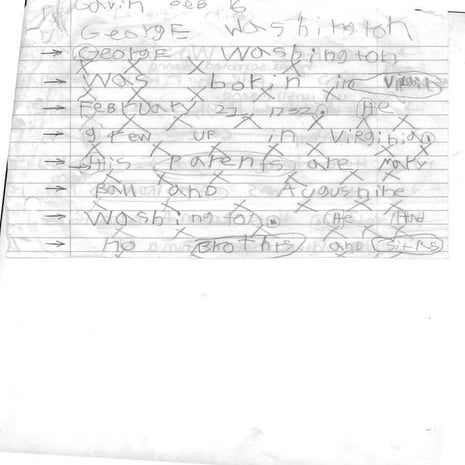 Gavin Feb 6
George Washington
George Washington
Was born in Virgin
February 22, 1732. He
grew up in Virginia.
His parents are Mary
Ball and Auguschine
Washington. He Had
no Brothrs and Sitrs